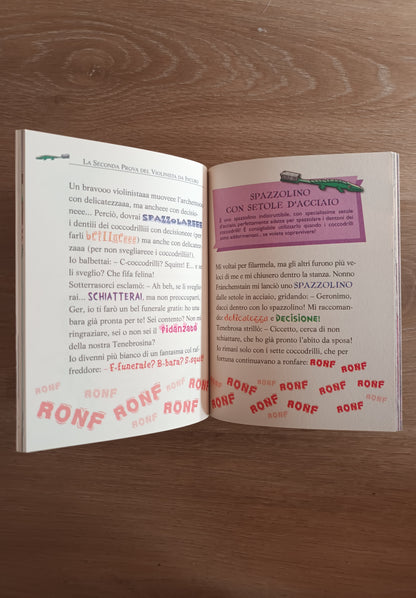 La Seconda Prova del Violinista da Paura
Un bravooo violinistaaa muoveee l'archettooo
con delicatezzaaa, ma ancheee con decisio-
neee... Perciò, dovrai SPAZZOLAREEE
i dentiii dei coccodrilliii con decisioneee (per
farli brillareee) ma anche con delicatezz-
zaaa (per non svegliareee i coccodrilliii!).
Io balbettai: – C-coccodrilli? Squitt! E... e se
li sveglio? Che fifa felina!
Sotterrasorci esclamò: – Ah beh, se li svegli
sarai... SCHIATTERAI, ma non preoccuparti,
Ger, io ti farò un bel funerale gratis: ho una
bara già pronta per te! Sei contento? Non vuoi
ringraziare, sei o non sei il fidanzato
della nostra Tenebrosina?
Io divenni più bianco di un fantasma col raf-
freddore: – F-funerale? B-bara? S-squitt!
RONF RONF RONF RONF RONF RONF RONF RONF
SPAZZOLINO
CON SETOLE D'ACCIAIO
È uno spazzolino indistruttibile, con specialissime setole
d'acciaio perfettamente adatte per spazzolare i dentoni dei
coccodrilli! È consigliabile utilizzarlo quando i coccodrilli
sono addormentati... se volete sopravvivere!
Mi voltai per filarmela, ma gli altri furono più ve-
loci di me e mi chiusero dentro la stanza. Nonno
Franchenstain mi lanciò uno SPAZZOLINO
dalle setole in acciaio, gridando: – Geronimo,
dacci dentro con lo spazzolino! Mi raccoman-
do: delicatezza e DECISIONE!
Tenebrosa strillò: – Ciccetto, cerca di non
schiattare, che ho già pronto l'abito da sposa!
Io rimasi solo con i sette coccodrilli, che per
fortuna continuavano a ronfare: RONF RONF
RONF RONF RONF RONF RONF RONF RONF